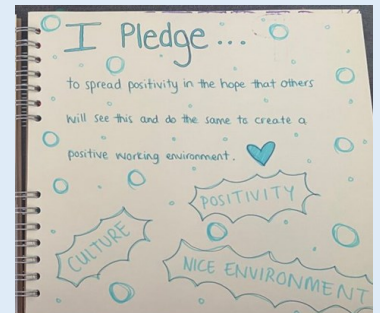 I Pledge...
to spread positivity in the hope that others
will see this and do the same to create a
positive working environment.
POSITIVITY
CULTURE
NICE ENVIRONMENT